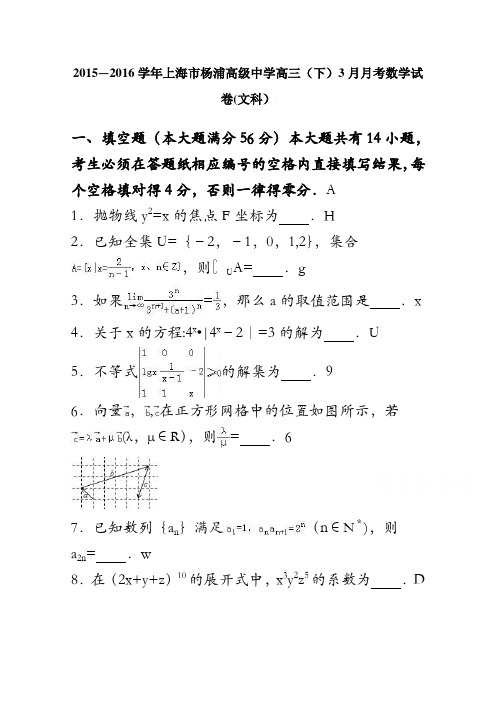 2015—2016学年上海市杨浦高级中学高三（下）3月月考数学试
卷(文科）
一、填空题（本大题满分56分）本大题共有14小题，
考生必须在答题纸相应编号的空格内直接填写结果,每
个空格填对得4分，否则一律得零分．A
1．抛物线y²=x的焦点F坐标为　　．H
2．已知全集U=｛－2，－1，0，1,2｝，集合
A={x|x=2/(n-1)，x、n∈Z}，则∁UA=　　．g
3．如果lim n→∞ 3ⁿ/(3ⁿ⁺¹+(a+1)ⁿ)=1/3，那么a的取值范围是　　．x
4．关于x的方程:4ˣ•|4ˣ－2｜=3的解为　　．U
5．不等式|1 0 0; lgx 1/(x-1) -2; 1 1 x|≥0的解集为　　．9
6．向量a，b,c在正方形网格中的位置如图所示，若
c=λa+μb(λ，μ∈R），则λ/μ=　　．6
b
a
c
7．已知数列｛aₙ｝满足a₁=1，aₙaₙ₊₁=2ⁿ（n∈N*），则
a₂ₙ=　　．w
8．在（2x+y+z）¹⁰的展开式中，x³y²z⁵的系数为　　．D